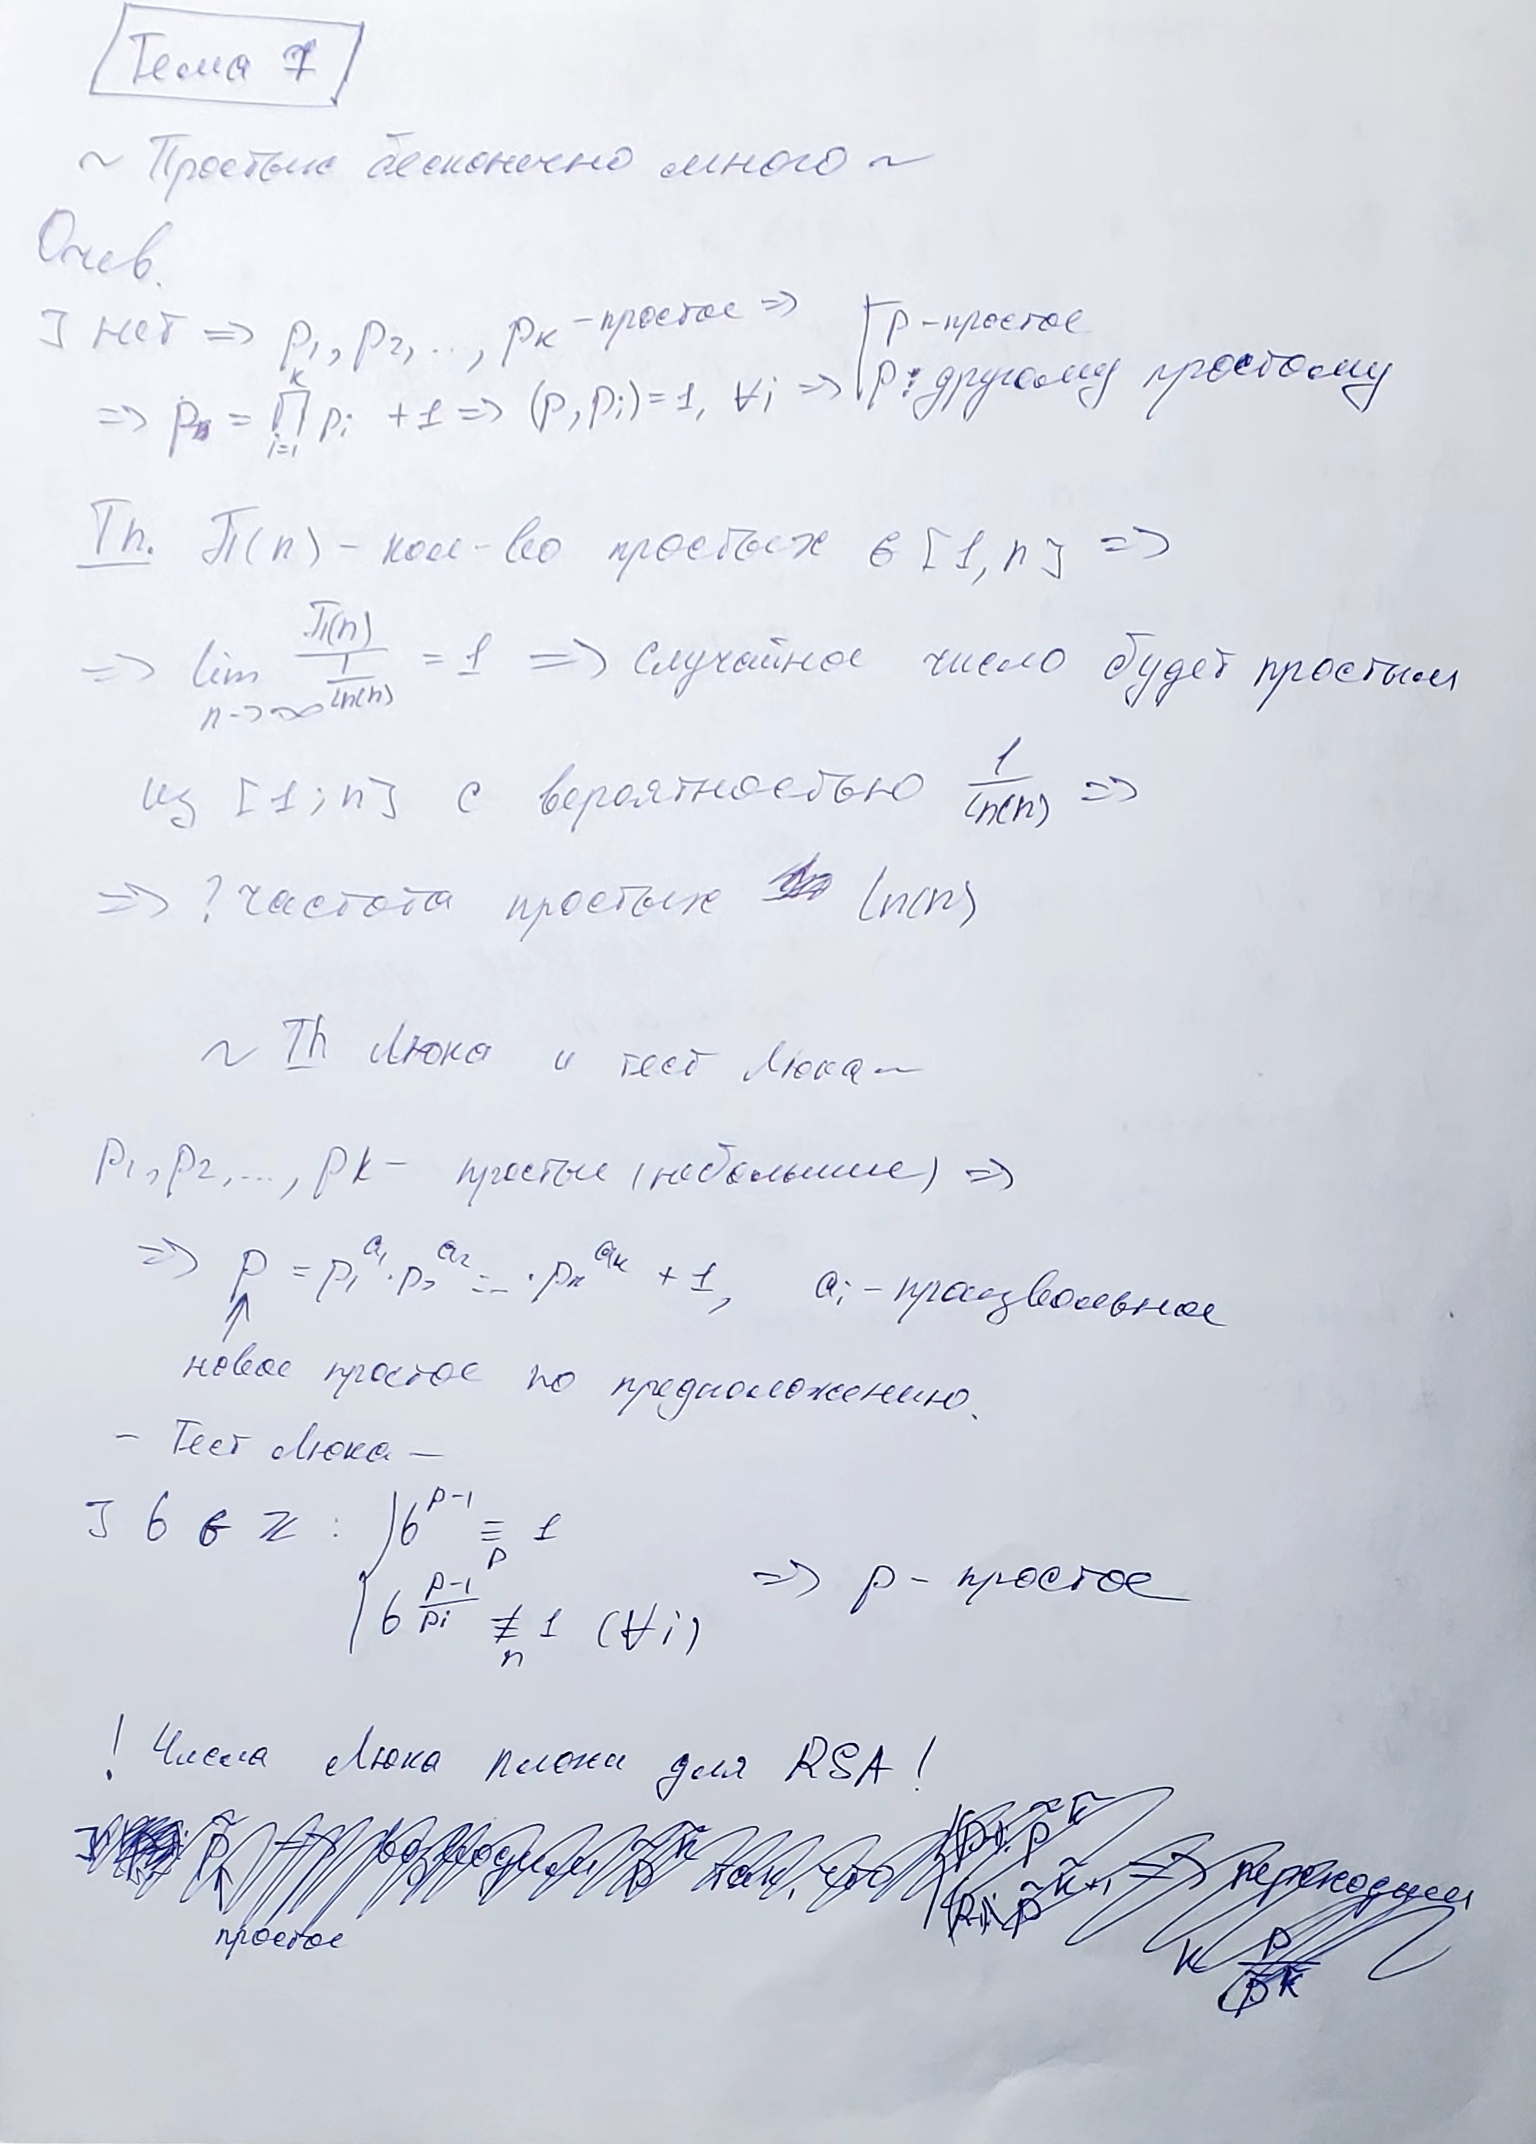 Тема 7
~ Простых бесконечно много ~
Очев.
] нет => p₁, p₂, ..., pₖ - простые => [ p - простое
=> p = ∏ᵢ₌₁ᵏ pᵢ + 1 => (p, pᵢ) = 1, ∀i => [ p ⋮ другому простому
Th. П(n) - кол-во простых в [1, n] =>
=> lim n->∞ П(n)/(1/ln(n)) = 1 => случайное число будет простым
из [1; n] с вероятностью 1/ln(n) =>
=> ? частота простых ln(n)
~ Th Люка и тест Люка ~
p₁, p₂, ..., pk - простые (небольшие) =>
=> p = p₁^a₁ · p₂^a₂ ... · pₖ^aₖ + 1, aᵢ - произвольные
↑
новое простое по предположению.
- Тест Люка -
] b в ℤ : { b^(p-1) ≡_p 1
{ b^((p-1)/pᵢ) ≢_n 1 (∀i) => p - простое
! Числа Люка плохи для RSA !
простое